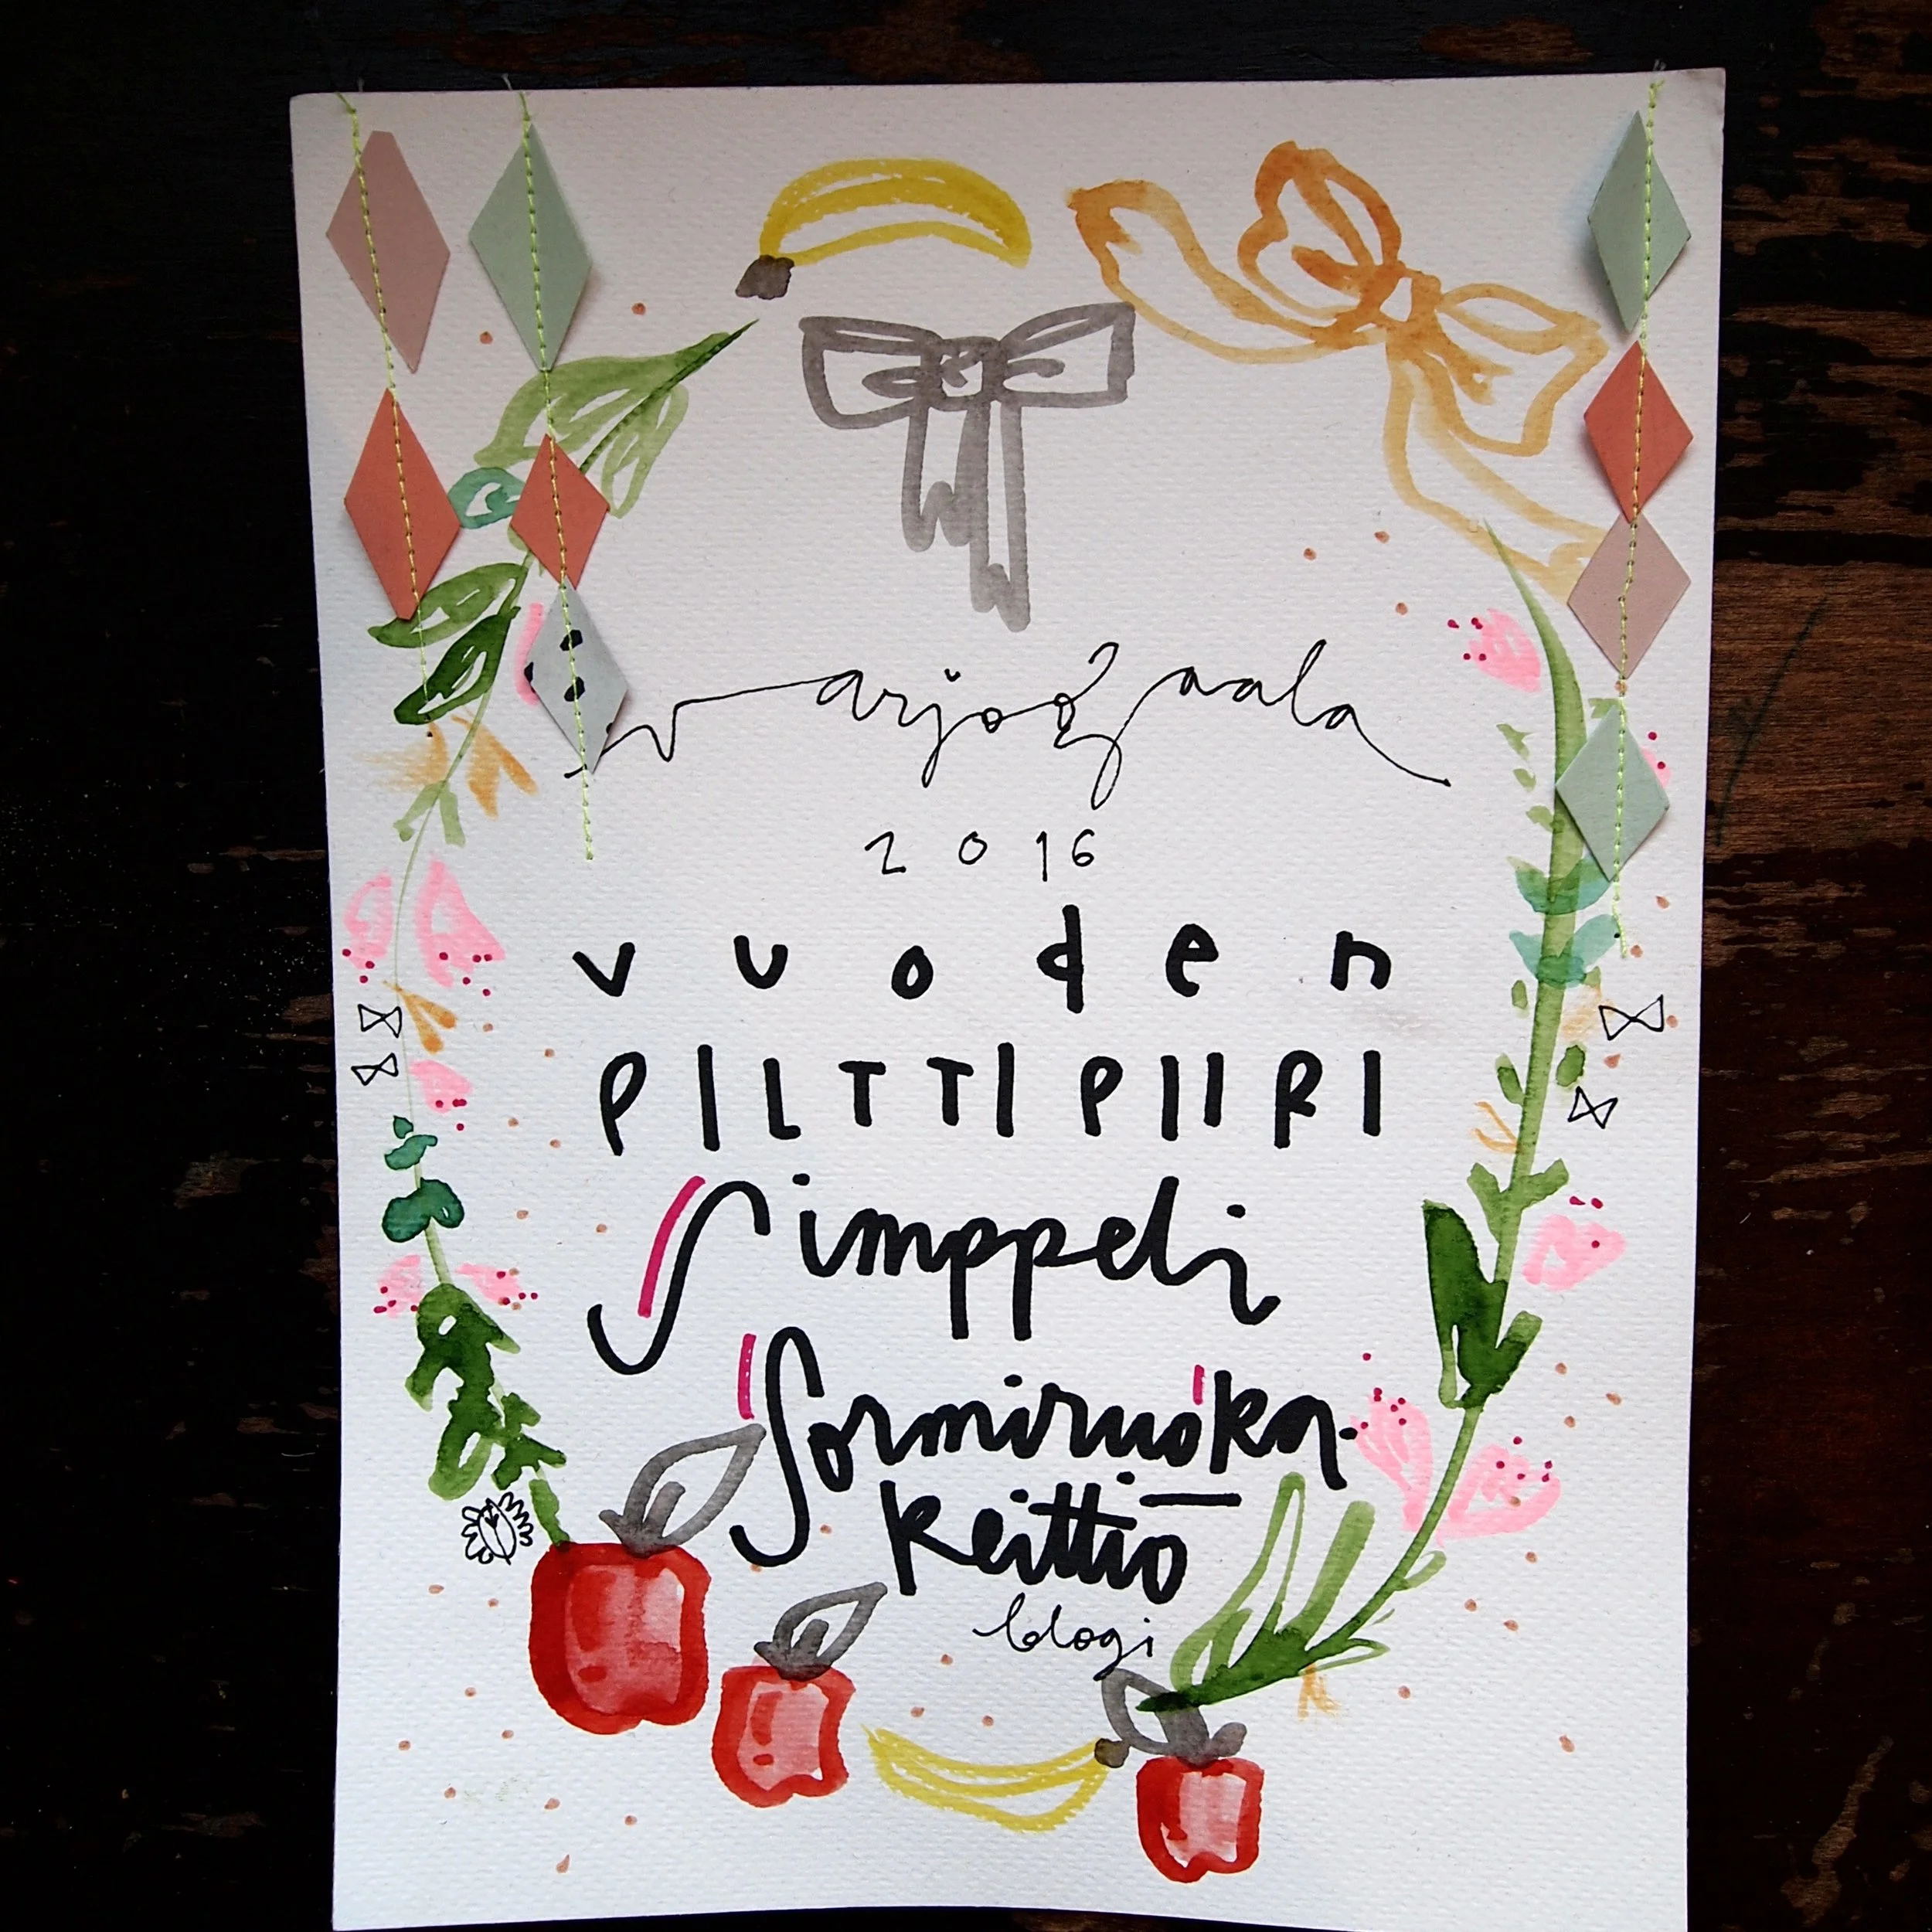 varjogaala
2016
vuoden
PILTTIPIIRI
Simppeli
Sormiruoka-
keittiö
blogi